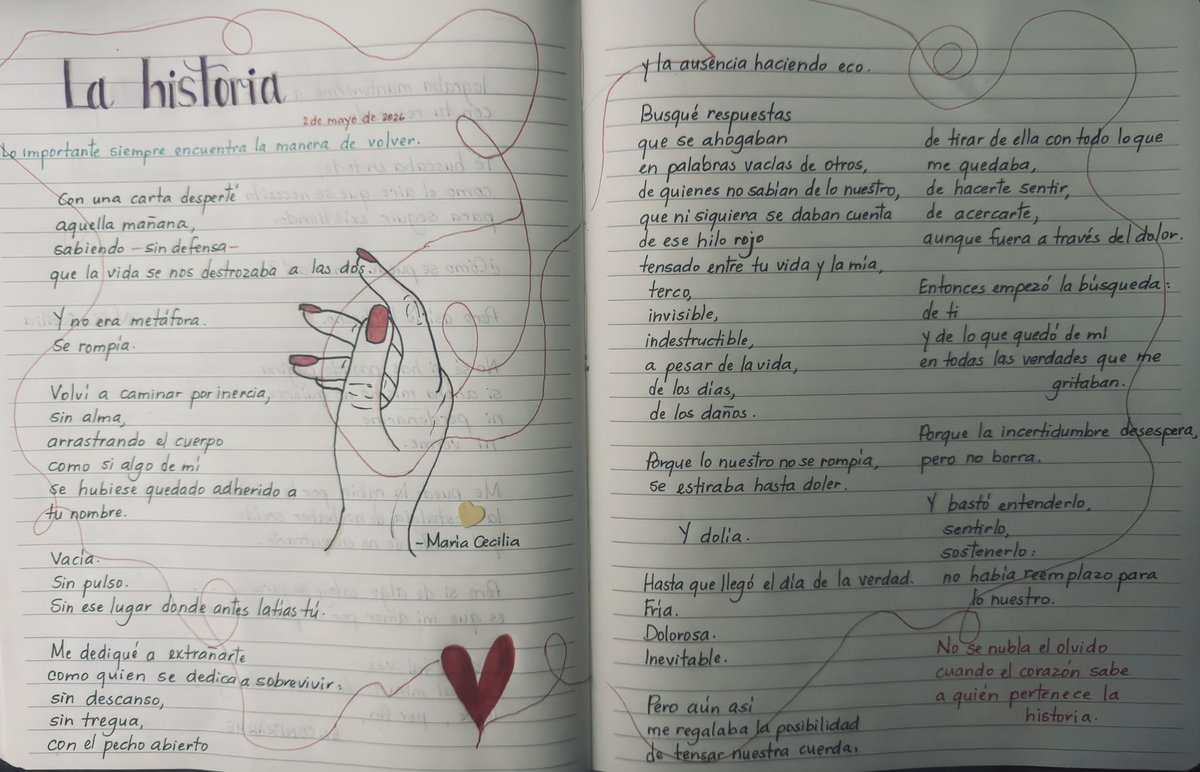 La historia
2 de mayo de 2026
Lo importante siempre encuentra la manera de volver.
Con una carta desperté
aquella mañana,
sabiendo -sin defensa-
que la vida se nos destrozaba a las dos.
Y no era metáfora.
Se rompía.
Volví a caminar por inercia,
sin alma,
arrastrando el cuerpo
como si algo de mí
se hubiese quedado adherido a
tu nombre.
Vacía.
Sin pulso.
Sin ese lugar donde antes latías tú.
Me dediqué a extrañarte
como quien se dedica a sobrevivir:
sin descanso,
sin tregua,
con el pecho abierto
-Maria Cecilia
y la ausencia haciendo eco.
Busqué respuestas
que se ahogaban
en palabras vacías de otros,
de quienes no sabían de lo nuestro,
que ni siquiera se daban cuenta
de ese hilo rojo
tensado entre tu vida y la mía,
terco,
invisible,
indestructible,
a pesar de la vida,
de los días,
de los daños.
Porque lo nuestro no se rompía,
se estiraba hasta doler.
Y dolía.
Hasta que llegó el día de la verdad.
Fría.
Dolorosa.
Inevitable.
Pero aún así
me regalaba la posibilidad
de tensar nuestra cuerda,
de tirar de ella con todo lo que
me quedaba,
de hacerte sentir,
de acercarte,
aunque fuera a través del dolor.
Entonces empezó la búsqueda:
de ti
y de lo que quedó de mí
en todas las verdades que me
gritaban.
Porque la incertidumbre desespera,
pero no borra.
Y bastó entenderlo,
sentirlo,
sostenerlo:
no había reemplazo para
lo nuestro.
No se nubla el olvido
cuando el corazón sabe
a quién pertenece la
historia.